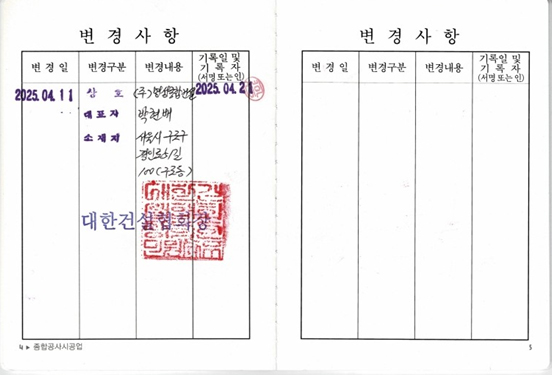 변경사항
변경일 변경구분 변경내용 기록일 및 기록자 (서명 또는 인)
2025.04.11 상호 (주) 2025.04.21
대표자 박현배
소재지 서울시 구로구
경인로51길
100(구로동)
대한건설협회장
4 ▶ 종합공사시공업
변경사항
변경일 변경구분 변경내용 기록일 및 기록자 (서명 또는 인)
5